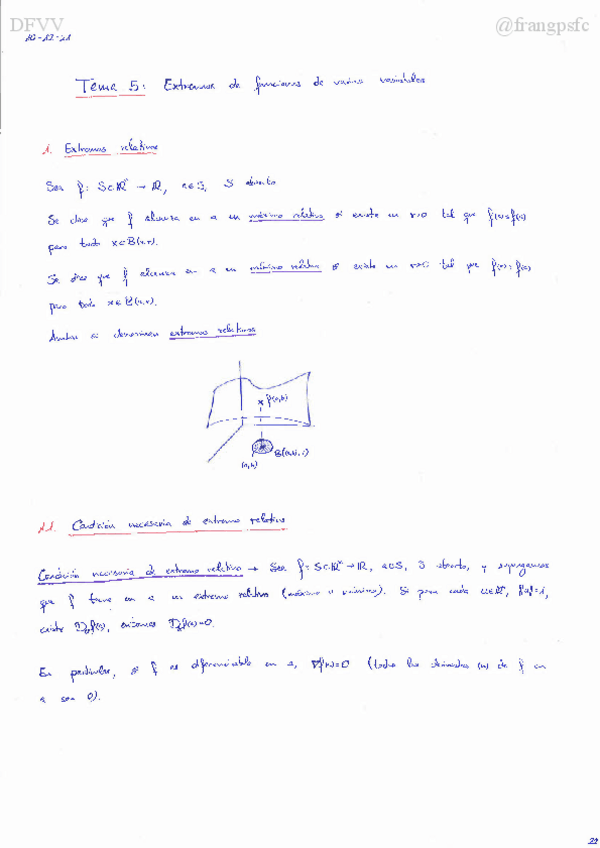 DFVV
@frangpsfc
Tema 5: Extremos de funciones de varias variables
1. Extremos relativos
Sea f: S⊂ℝⁿ → ℝ, a∈S, S abierto
Se dice que f alcanza en a un máximo relativo si existe un r>0 tal que f(x)≤f(a)
para todo x∈B(a,r).
Se dice que f alcanza en a un mínimo relativo si existe un r>0 tal que f(x)≥f(a)
para todo x∈B(a,r).
Ambos se denominan extremos relativos
f(a,b)
B((a,b),r)
(a,b)
1.1. Condición necesaria de extremo relativo
Condición necesaria de extremo relativo → Sea f: S⊂ℝⁿ→ℝ, a∈S, S abierto, y supongamos
que f tiene en a un extremo relativo (máximo o mínimo). Si para cada u∈ℝⁿ, ‖u‖=1,
existe Dᵤf(a), entonces Dᵤf(a)=0.
En particular, si f es diferenciable en a, ∇f(a)=0 (todas las derivadas de f en
a son 0).